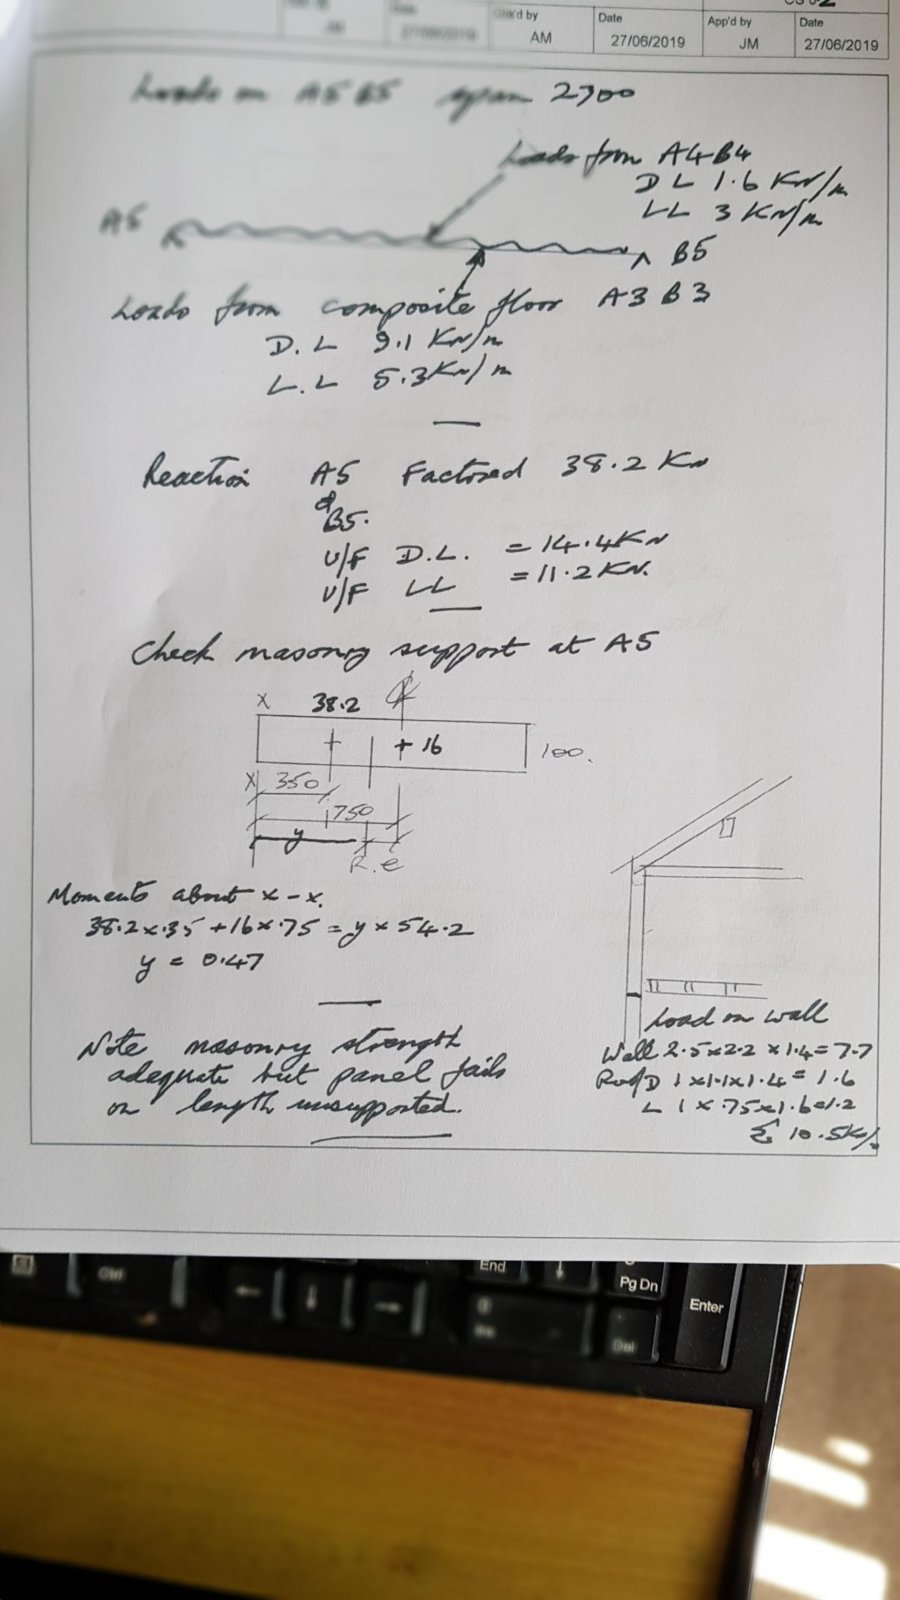 Chk'd by
Date
App'd by
Date
AM
27/06/2019
JM
27/06/2019
Loads on A5 B5 span 2700
Loads from A4B4
DL 1.6 KN/m
LL 3 KN/m
A5
B5
Loads from composite floor A3 B3
D.L 9.1 KN/m
L.L 5.3 KN/m
Reaction A5 Factored 38.2 KN
& B5.
U/F D.L. = 14.4KN
U/F LL = 11.2 KN.
Check masonry support at A5
X 38.2 ℄
+ 16
100.
X
350
750
y
R.e
Moments about x-x.
38.2x.35 + 16x.75 = y x 54.2
y = 0.47
Note masonry strength
adequate but panel fails
on length unsupported.
Load on wall
Wall 2.5x2.2 x1.4 = 7.7
Roof D 1x1.1x1.4 = 1.6
L 1 x .75x1.6=1.2
Σ 10.5K/
Ctrl
End
Pg Dn
Enter
0
Ins
Del